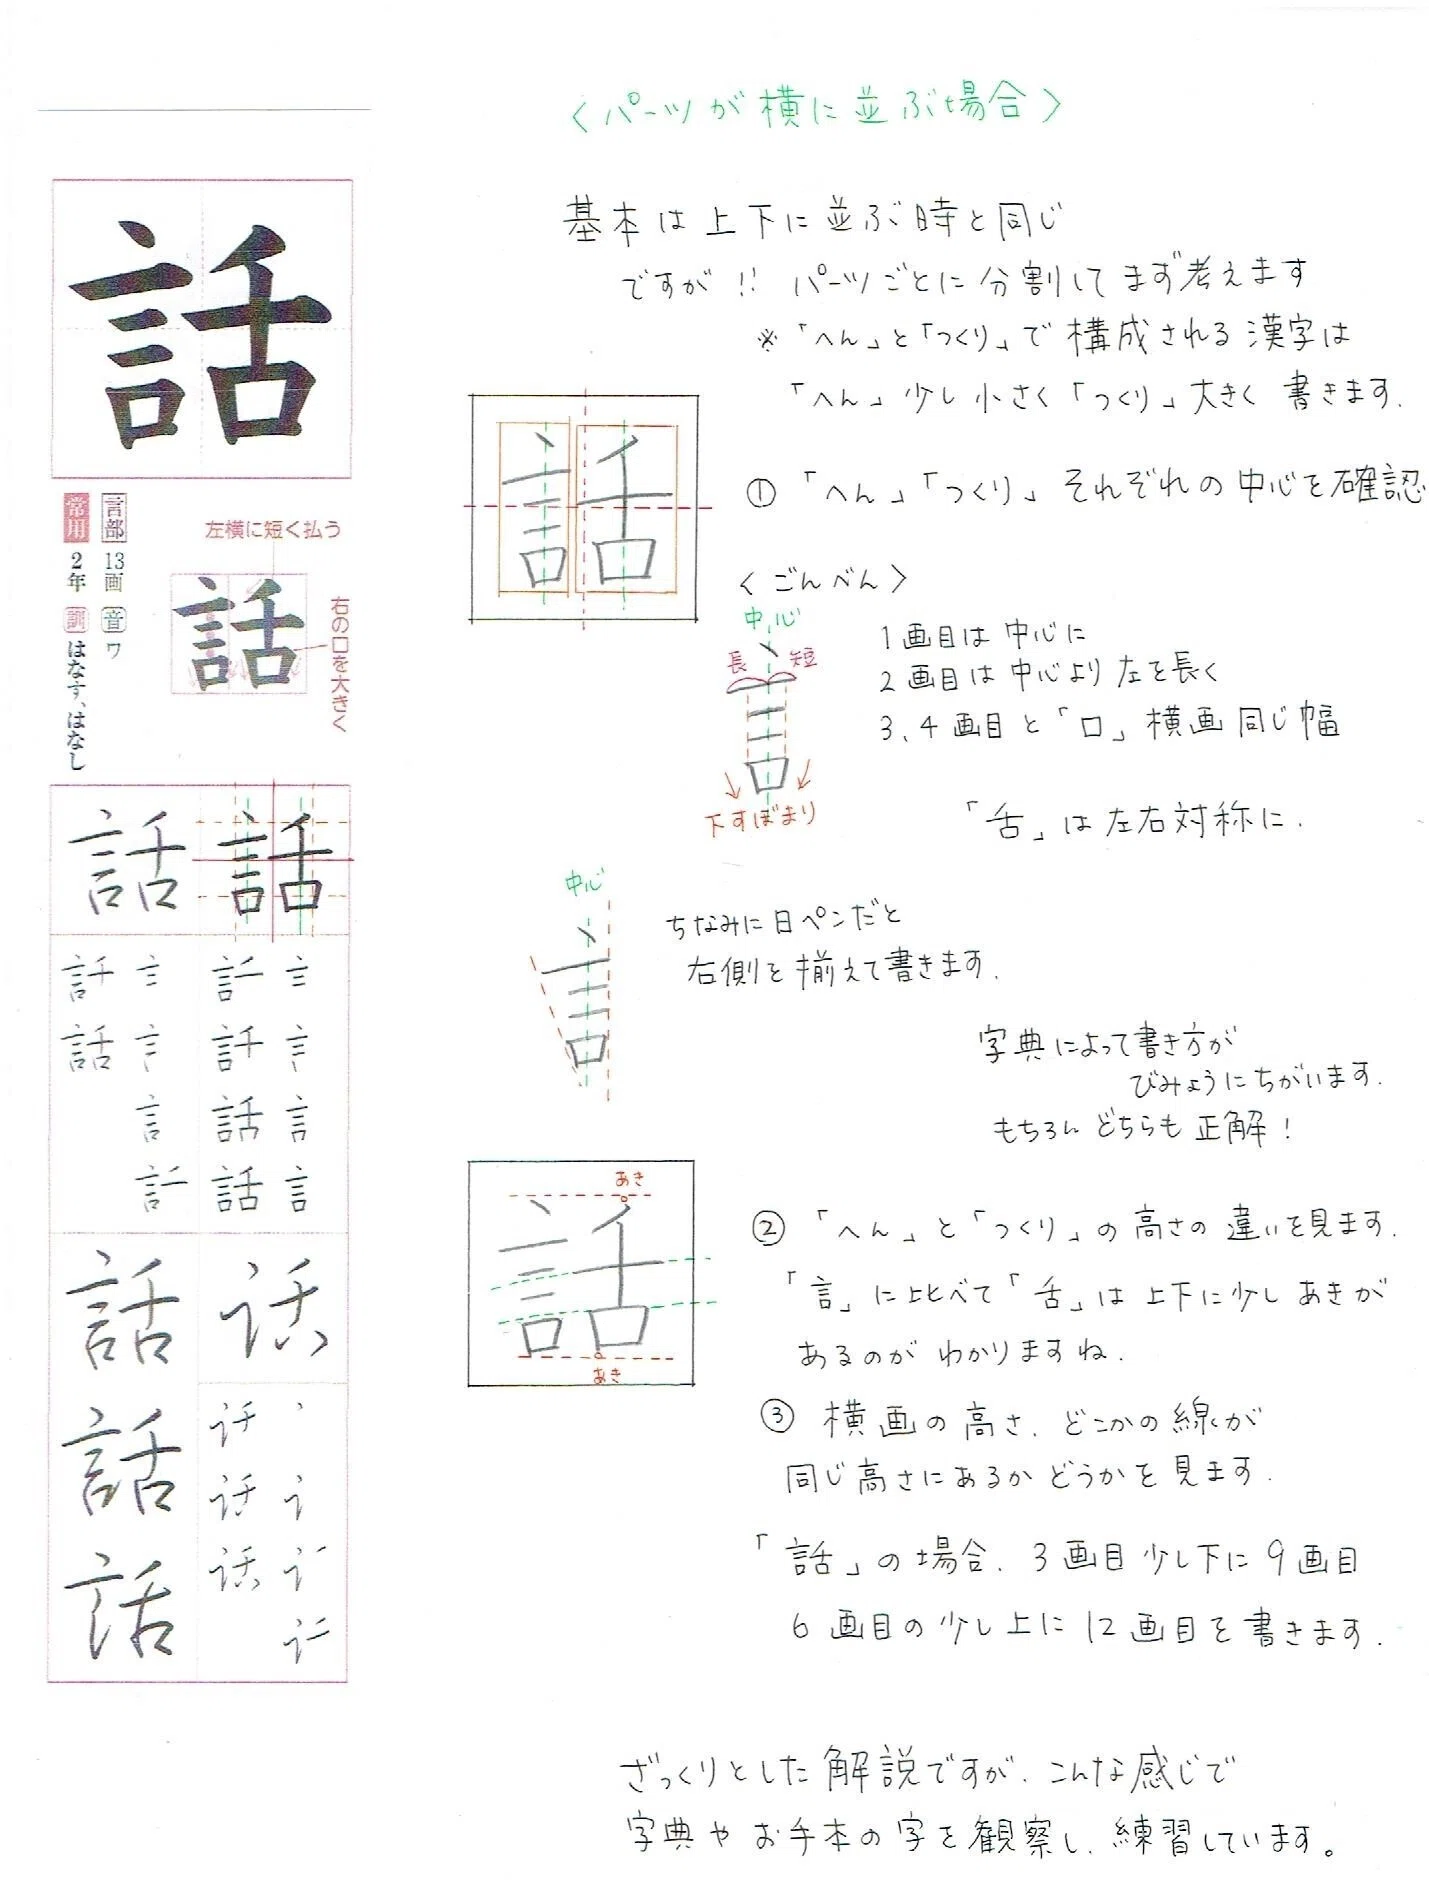 〈パーツが横に並ぶ場合〉
基本は上下に並ぶ時と同じ
ですが!! パーツごとに分割してまず考えます
※「へん」と「つくり」で構成される漢字は
「へん」少し小さく「つくり」大きく書きます.
① 「へん」「つくり」それぞれの中心を確認
話
〈ごんべん〉
中心
長 短
下すぼまり
1画目は中心に
2画目は中心より左を長く
3、4画目と「口」横画同じ幅
「舌」は左右対称に.
中心
言
ちなみに日ペンだと
右側を揃えて書きます.
字典によって書き方が
びみょうにちがいます.
もちろんどちらも正解!
あき
話
あき
② 「へん」と「つくり」の高さの違いを見ます.
「言」に比べて「舌」は上下に少しあきが
あるのがわかりますね.
③ 横画の高さ、どこかの線が
同じ高さにあるかどうかを見ます.
「話」の場合、3画目少し下に9画目
6画目の少し上に12画目を書きます.
ざっくりとした解説ですが、こんな感じで
字典やお手本の字を観察し、練習しています。
話
言部 13画 音 ワ
常用 2年 訓 はなす、はなし
左横に短く払う
話
右の口を大きく
話 話
話 話
話
話